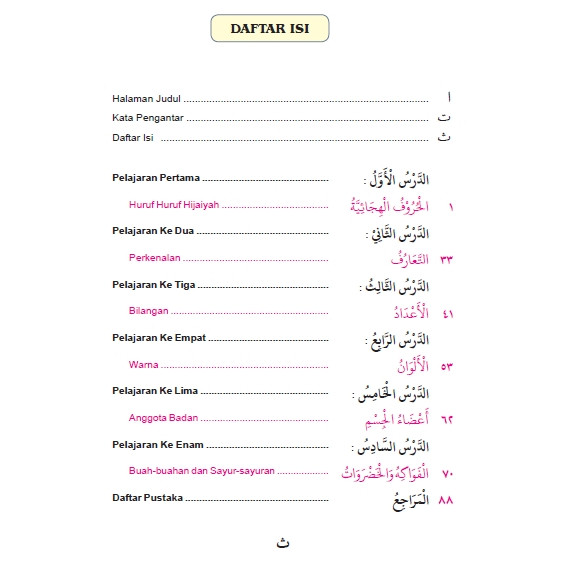 DAFTAR ISI
Halaman Judul ........................................................................................ ا
Kata Pengantar ....................................................................................... ت
Daftar Isi ................................................................................................ ث
Pelajaran Pertama ............................................. الدَّرْسُ الْأَوَّلُ :
Huruf Huruf Hijaiyah ...................................... الْحُرُوْفُ الْهِجَائِيَّةُ ١
Pelajaran Ke Dua ............................................... الدَّرْسُ الثَّانِيْ :
Perkenalan .................................................... التَّعَارُفُ ٣٣
Pelajaran Ke Tiga ............................................... الدَّرْسُ الثَّالِثُ :
Bilangan ......................................................... الْأَعْدَادُ ٤١
Pelajaran Ke Empat ........................................... الدَّرْسُ الرَّابِعُ :
Warna ............................................................ الْأَلْوَانُ ٥٣
Pelajaran Ke Lima .............................................. الدَّرْسُ الْخَامِسُ :
Anggota Badan .............................................. أَعْضَاءُ الْجِسْمِ ٦٢
Pelajaran Ke Enam ............................................ الدَّرْسُ السَّادِسُ :
Buah-buahan dan Sayur-sayuran .................. الْفَوَاكِهُ وَالْخَضْرَوَاتُ ٧٠
Daftar Pustaka ................................................... الْمَرَاجِعُ ٨٨
ث